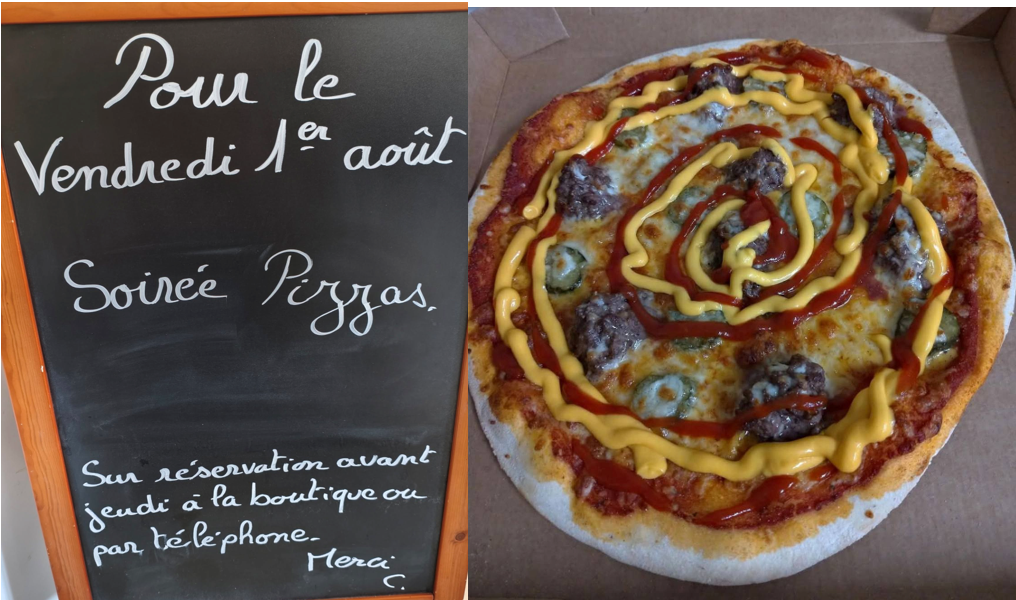 Pour le
Vendredi 1er août
Soirée Pizzas.
Sur réservation avant
jeudi à la boutique ou
par téléphone.
Merci
C.